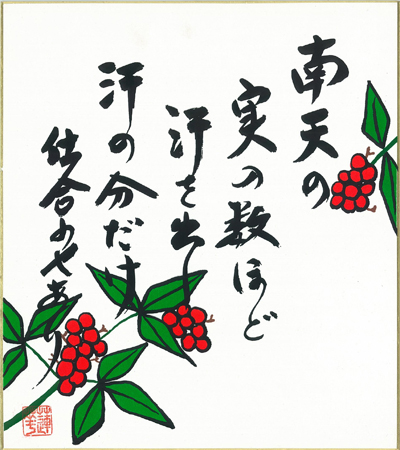 南天の
実の数ほど
汗を出し
汗の分だけ
仕合わせあり